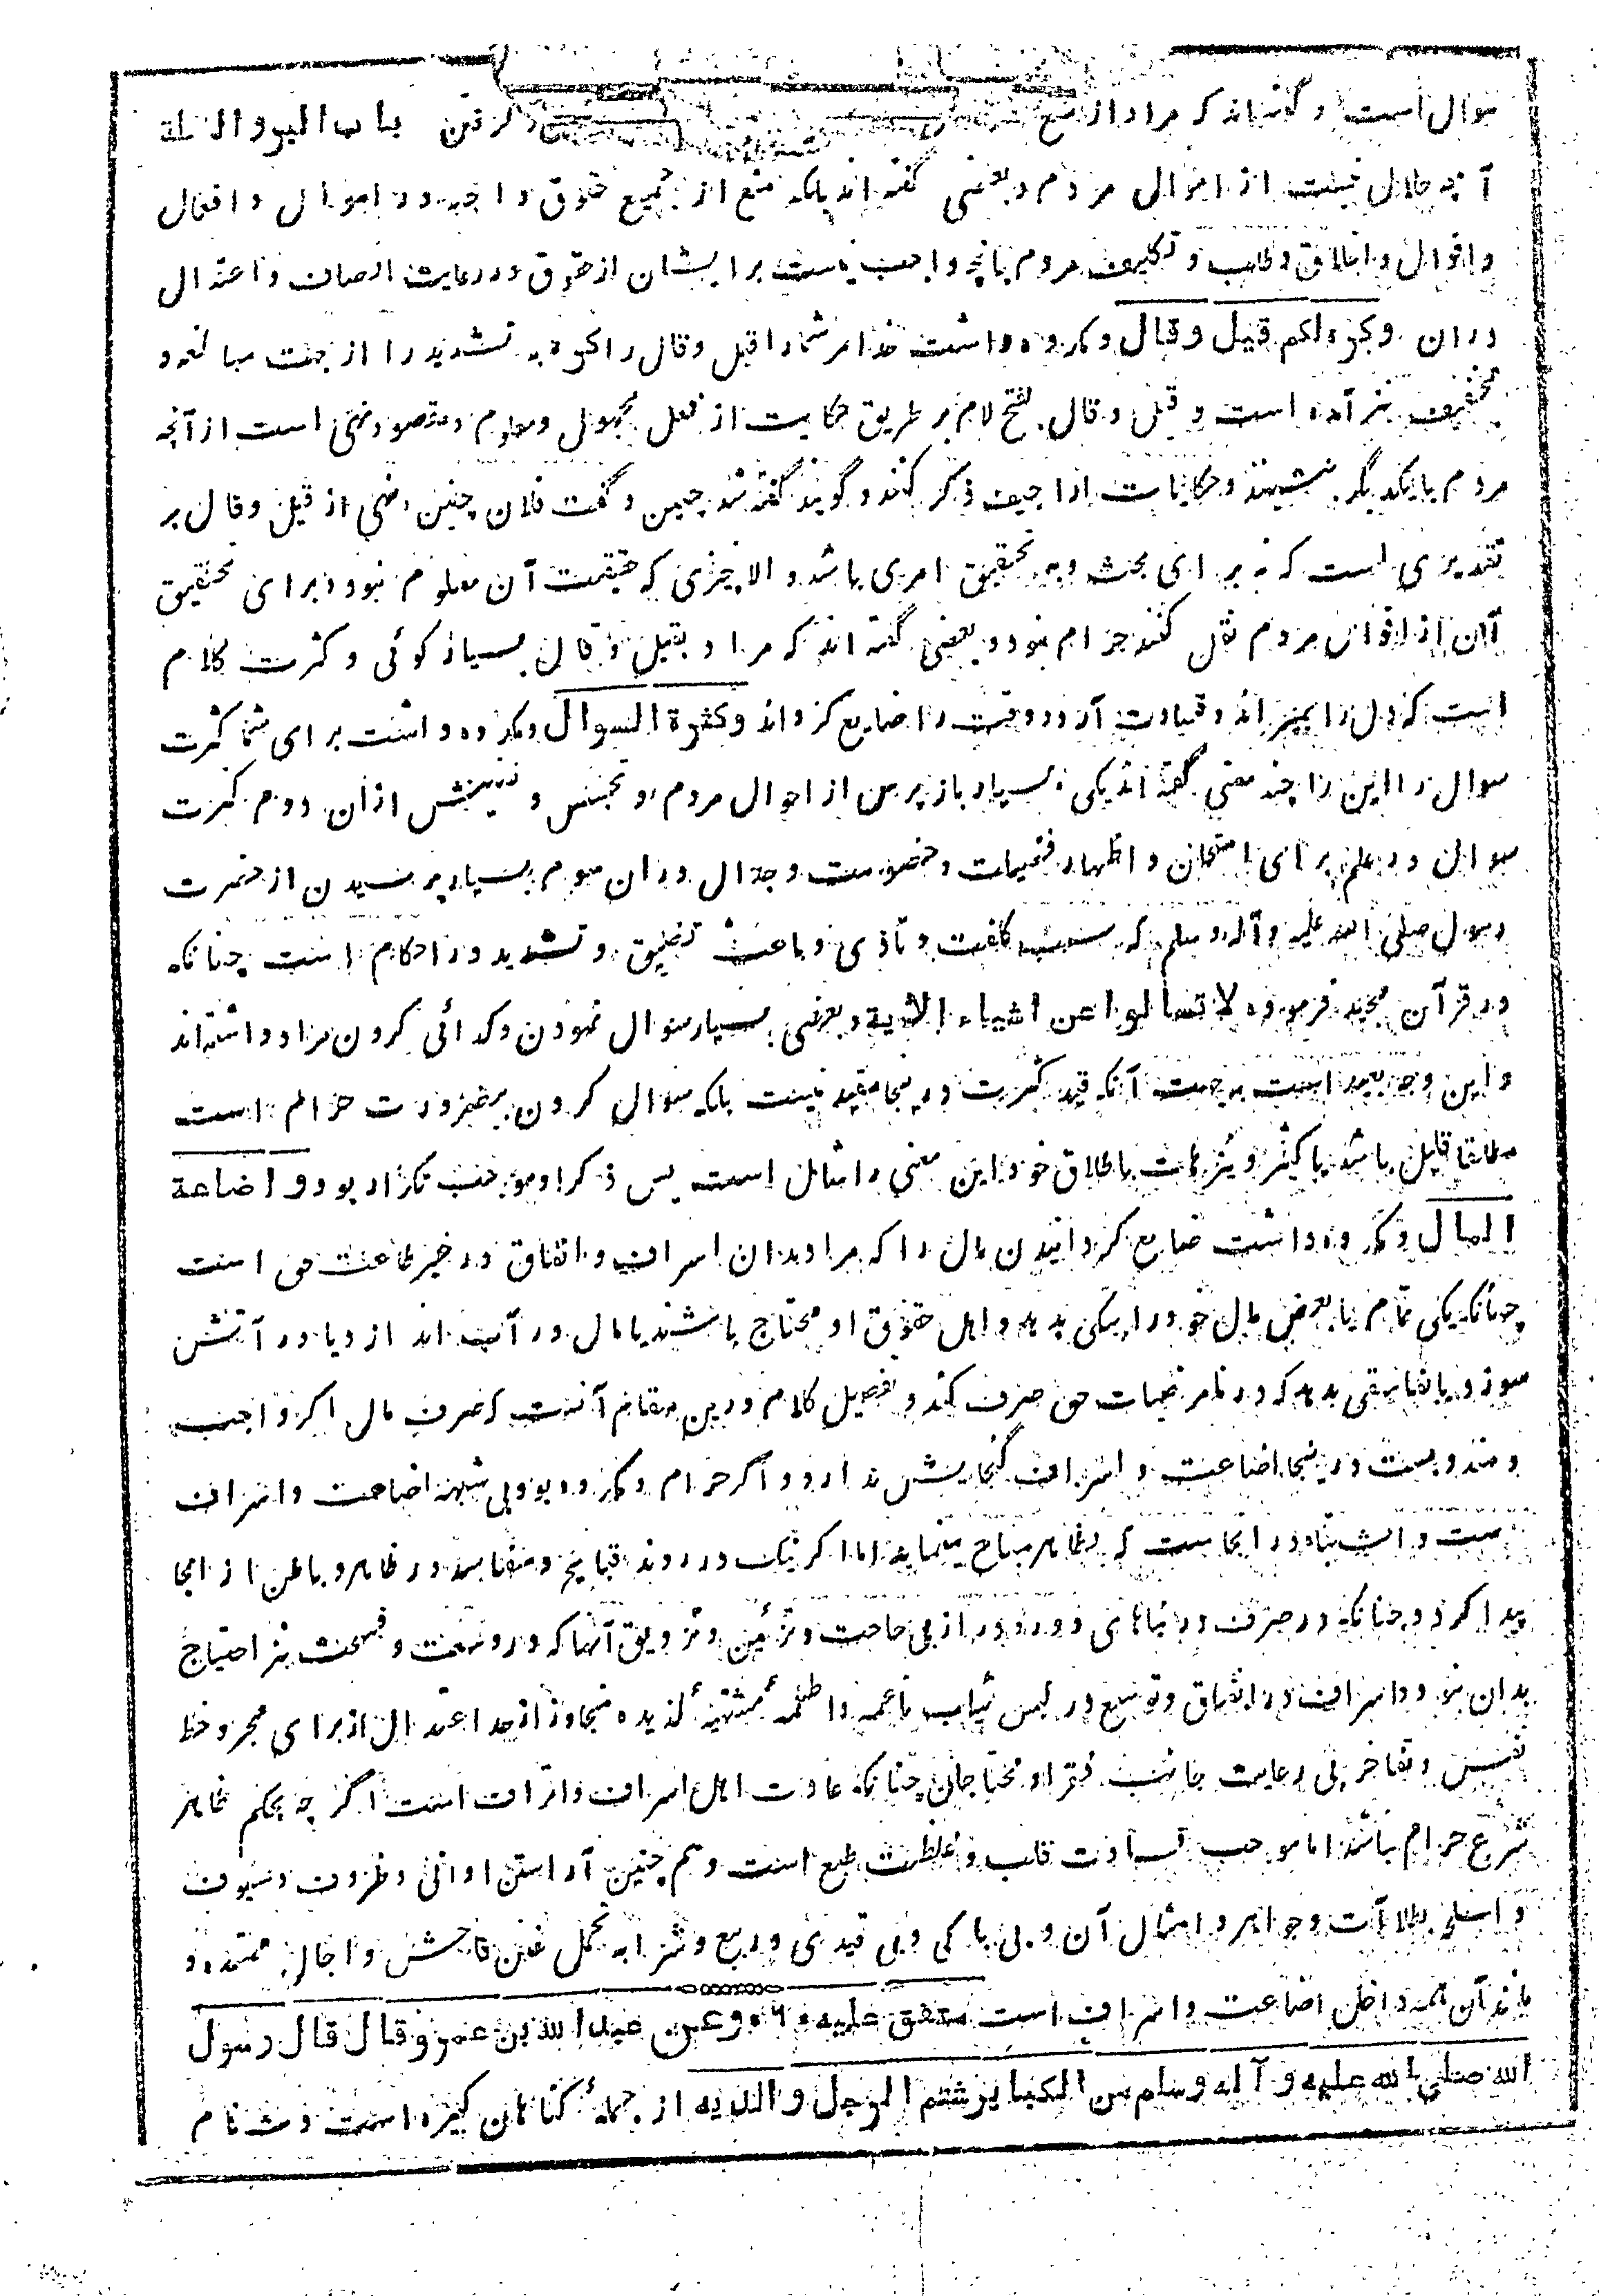 سوال است و گفته‌اند که مراد از منع گرفتن باب البر والصلة
آنچه حلال نیست از اموال مردم و بعضی گفته اند بلکه منع از جمیع حقوق واجبه در اموال و افعال
و اقوال و اخلاق و طلب و تکلیف مردم بانچه واجب نیست بر ایشان از حقوق و در رعایت انصاف و اعتدال
دران وکره لکم قیل وقال و مکروه داشت خدا مر شما را قیل وقال را کره به تشدید را از جهت مبالغه و
تخفیف نیز آمده است و قیل و قال بفتح لام بر طریق حکایت از فعل مجهول و معلوم و مقصود نهی است از آنچه
مردم بایکدیگر بنشینند و حکایات اراجیف ذکر کنند و گویند گفته شد چنین و گفت فلان چنین و نهی از قیل وقال بر
تقدیری است که نه برای بحث و تحقیق امری باشد و الا چیزی که حقیقت آن معلوم نبود و برای تحقیق
آن از اقوال مردم نقل کنند حرام نبود و بعضی گفته اند که مراد بقیل و قال بسیار گوئی و کثرت کلام
است که دل را بمیراند و قساوت آرد و وقت را ضایع گرداند وکثرة السوال و مکروه داشت برای شما کثرت
سوال را این را چند معنی گفته اند یکی بسیار باز پرس از احوال مردم و تجسس و تفتیش ازان دوم کثرت
سوال در علم برای امتحان و اظهار فضیلت و خصومت و جدال دران سوم بسیار پرسیدن از حضرت
رسول صلی الله علیه و آله و سلم که سبب کلفت و تاذی و باعث تضییق و تشدید در احکام است چنانکه
در قرآن مجید فرموده لا تسألوا عن اشیاء الآیة و بعضی بسیار سوال نمودن و گدائی کردن مراد داشته‌اند
و این وجه بعید است بجهت آنکه قید کثرت در ینجا مفید نیست بلکه سوال کردن بیضرورت حرام است
مطلقا قلیل باشد یا کثیر و نیز هات باطلاق خود این معنی را شامل است پس ذکر او موجب تکرار بود واضاعة
المال و مکروه داشت ضایع گردانیدن مال را که مراد بدان اسراف و انفاق در غیر طاعت حق است
چنانکه یکی تمام یا بعض مال خود را بیکی بدهد و اهل حقوق او محتاج باشند یا مال در آب اندازد یا در آتش
سوزد یا بفاسقی بدهد که در نامرضیات حق صرف کند و تفصیل کلام درین مقام آنست که صرف مال اگر واجب
و مندوبست در ینجا اضاعت و اسراف گنجایش ندارد و اگر حرام و مکروه بود بی شبهه اضاعت و اسراف
ست و اشتباه در انجاست که بظاهر مباح مینماید اما اگر نیک در روند قبایح و مفاسد در ظاهر و باطن از انجا
پیدا گردد چنانکه در صرف در بناهای دور و دراز بی حاجت و تزئین و تزویق آنها که در وسعت و فسحت نیز احتیاج
بدان نبود و اسراف در انفاق و توسیع در لبس ثیاب ناعمه و اطعمۀ مشتهیۀ لذیذه متجاوز از حد اعتدال از برای مجرد حظ
نفس و تفاخر بی رعایت جانب فقرا و محتاجان چنانکه عادت اهل اسراف و اتراف است اگر چه بحکم ظاهر
شرع حرام نباشد اما موجب قساوت قلب و غلظت طبع است و هم چنین آراستن اوانی و ظروف و سیوف
و اسلحه بطلاآت و جواهر و امثال آن و بی باکی و بی قیدی در بیع و شرا به تحمل غبن فاحش و آجال ممتده و
مانند آن همه داخل اضاعت و اسراف است متفق علیه ۶ وعن عبد الله بن عمرو قال قال رسول
الله صلی الله علیه و آله وسلم من الکبایر شتم الرجل والدیه از جملۀ گناهان کبیره است دشنام